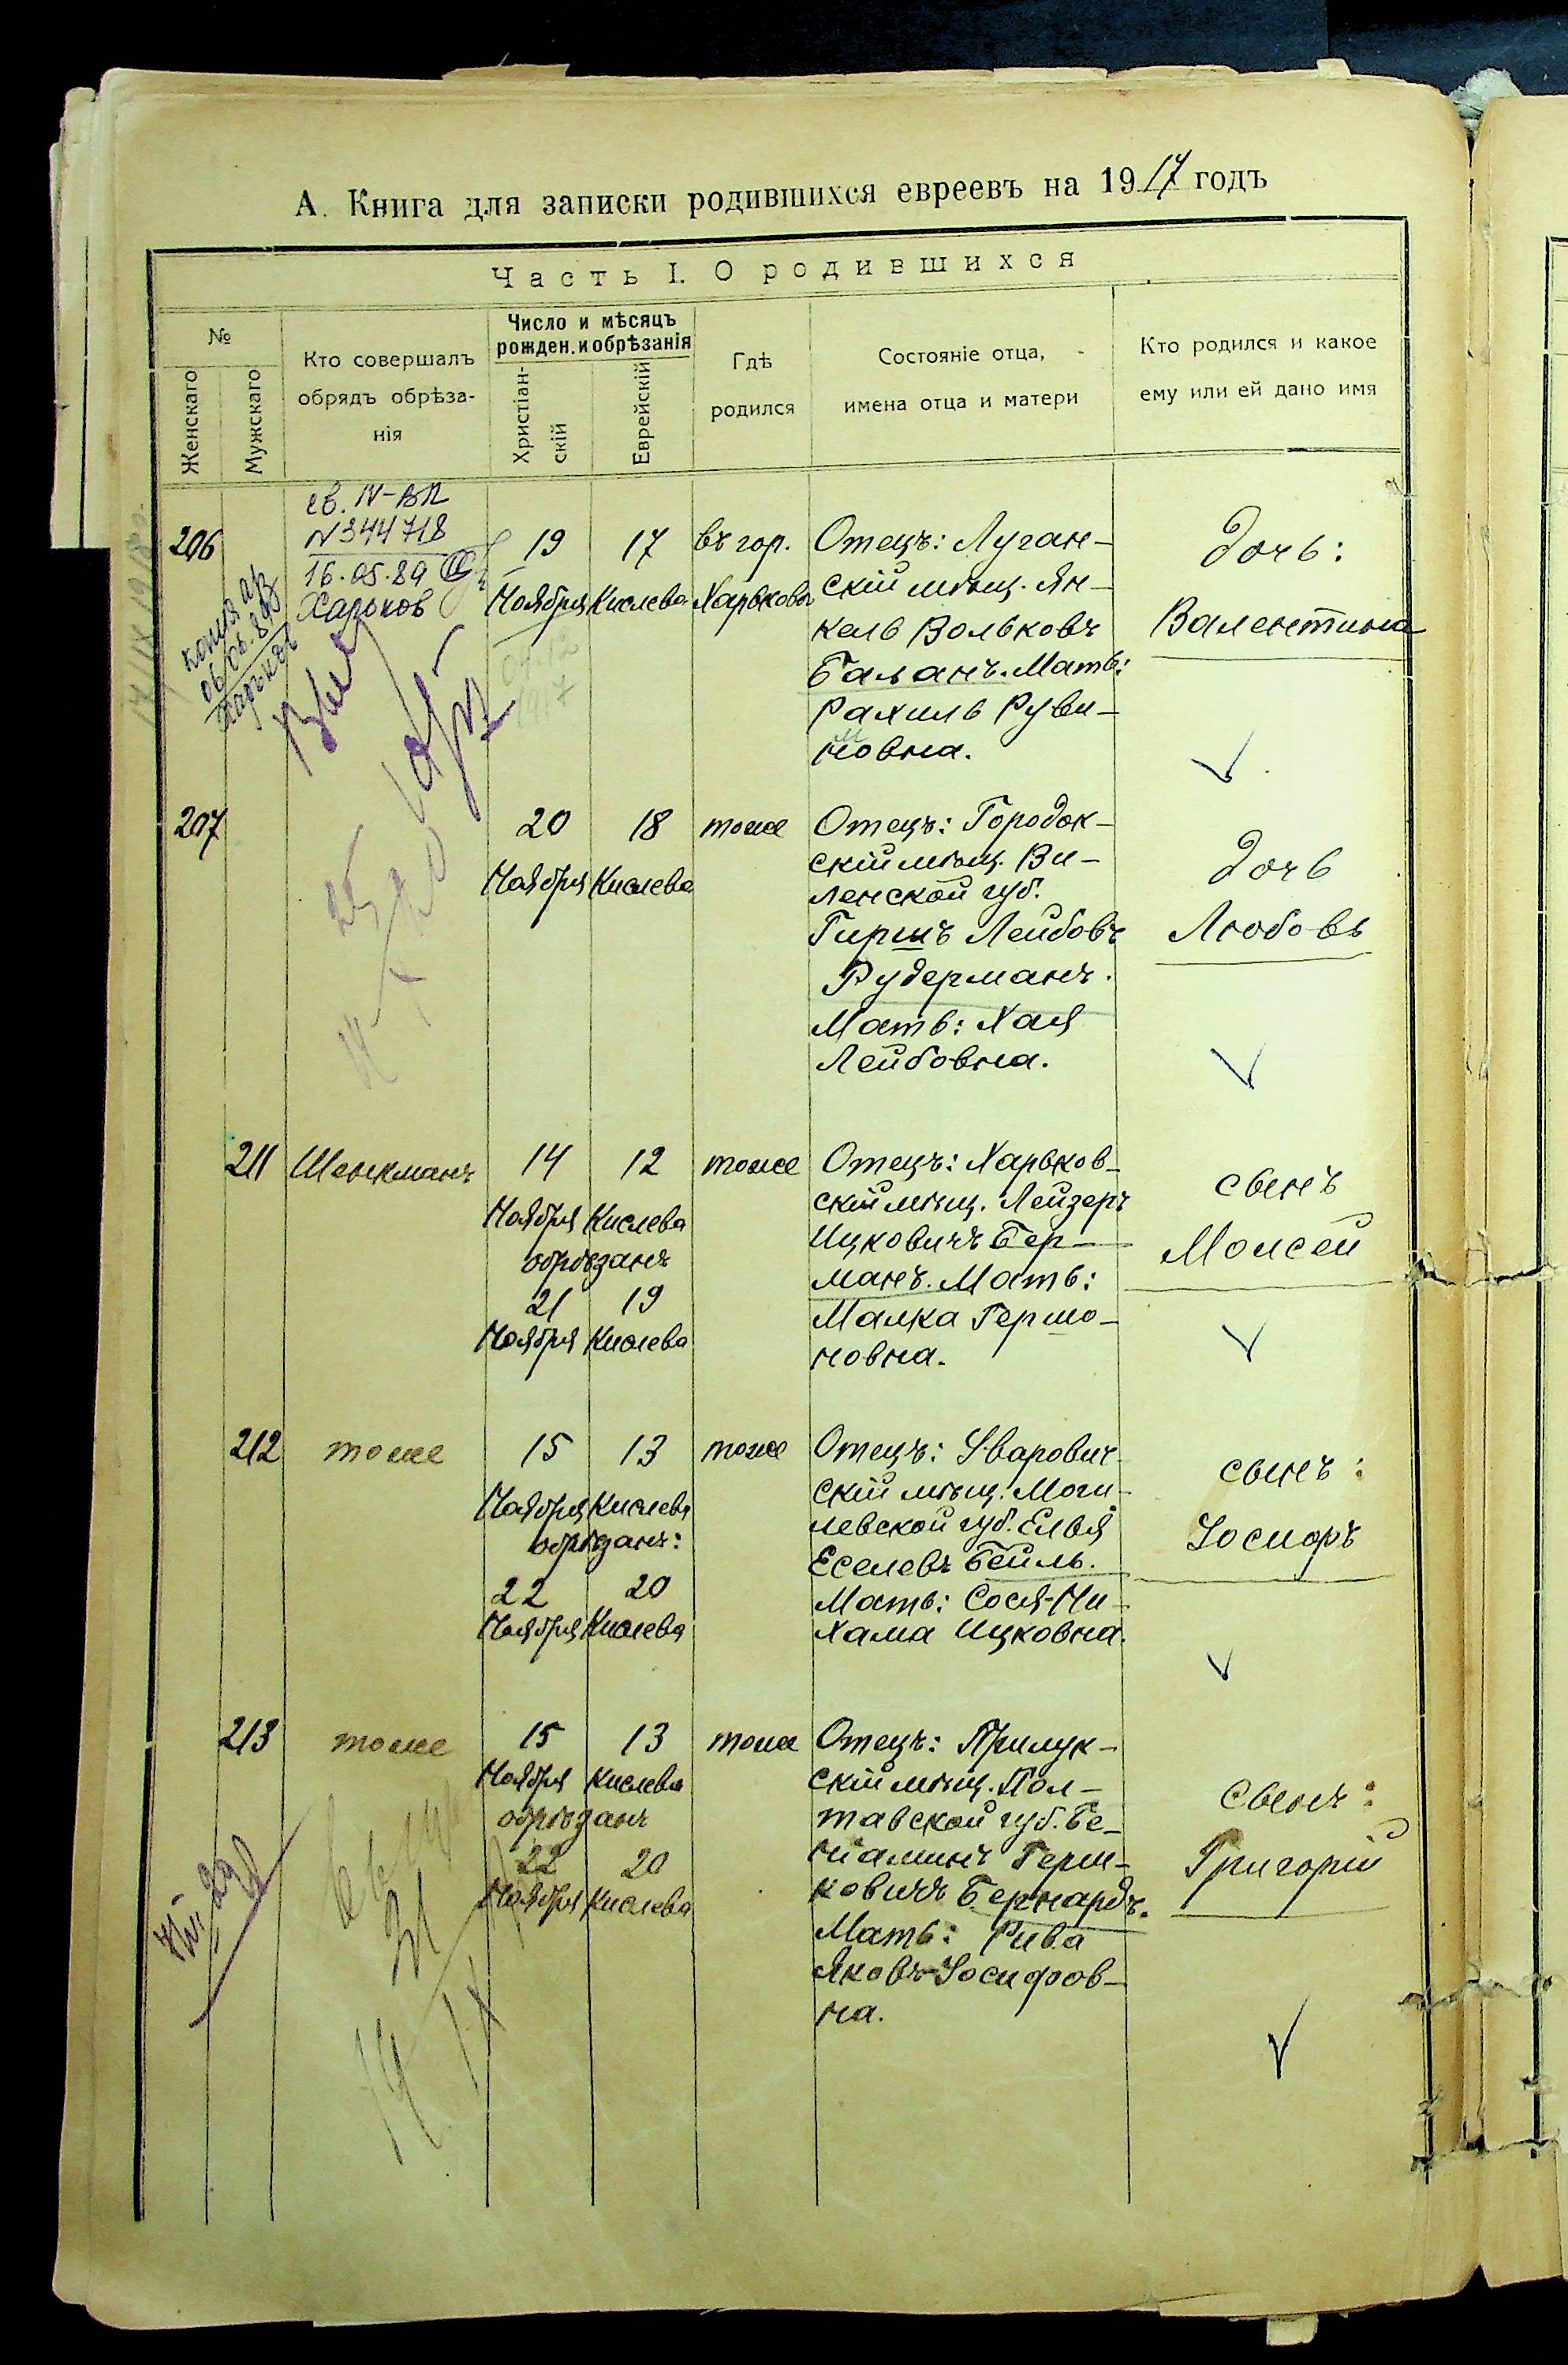 А. Книга для записки родившихся евреевъ на 1917 годъ
Часть I. О родившихся
№
Женскаго
Мужскаго
Кто совершалъ
обрядъ обрѣза-
нія
Число и мѣсяцъ
рожден. и обрѣзанія
Христіан-
скій
Еврейскій
Гдѣ
родился
Состояніе отца,
имена отца и матери
Кто родился и какое
ему или ей дано имя
206
св. IV-ВЛ
N 344718
16.05.89
Харьков
копия
06.06.89
Харьков
19
Ноября
17
Кислева
въ гор.
Харькова
Отецъ: Луган-
скій мѣщ. Ян-
кель Вольковъ
Баланъ. Мать:
Рахиль Руви-
новна.
Дочь:
Валентина
04.12
1917
207
20
Ноября
18
Кислева
тоже
Отецъ: Городок-
скій мѣщ. Ви-
ленской губ.
Гиршъ Лейбовъ
Рудерманъ.
Мать: Хая
Лейбовна.
Дочь
Любовь
211
Шенкманъ
14
Ноября
12
Кислева
обрѣзанъ
21
Ноября
19
Кислева
тоже
Отецъ: Харьков-
скій мѣщ. Лейзеръ
Ицковичъ Бер-
манъ. Мать:
Малка Гершо-
новна.
сынъ
Моисей
212
тоже
15
Ноября
13
Кислева
обрѣзанъ:
22
Ноября
20
Кислева
тоже
Отецъ: Уварович-
скій мѣщ. Моги-
левской губ. Елья
Еселевъ Бейль.
Мать: Сося-Ни-
хама Ицковна.
сынъ:
Іосифъ
213
тоже
15
Ноября
13
Кислева
обрѣзанъ
22
Ноября
20
Кислева
тоже
Отецъ: Прилук-
скій мѣщ. Пол-
тавской губ. Бе-
ніаминъ Герш-
ковичъ Бернардъ.
Мать: Рива
Яковъ-Іосифов-
на.
сынъ:
Григорій